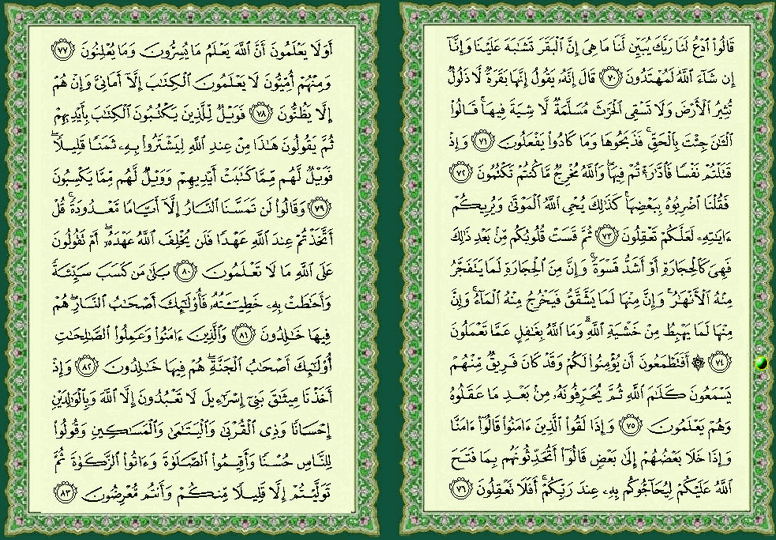 قَالُوا۟ ٱدْعُ لَنَا رَبَّكَ يُبَيِّن لَّنَا مَا هِىَ إِنَّ ٱلْبَقَرَ تَشَٰبَهَ عَلَيْنَا وَإِنَّآ
إِن شَآءَ ٱللَّهُ لَمُهْتَدُونَ ٧٠ قَالَ إِنَّهُۥ يَقُولُ إِنَّهَا بَقَرَةٌ لَّا ذَلُولٌ
تُثِيرُ ٱلْأَرْضَ وَلَا تَسْقِى ٱلْحَرْثَ مُسَلَّمَةٌ لَّا شِيَةَ فِيهَا ۚ قَالُوا۟
ٱلْـَٰٔنَ جِئْتَ بِٱلْحَقِّ ۚ فَذَبَحُوهَا وَمَا كَادُوا۟ يَفْعَلُونَ ٧١ وَإِذْ
قَتَلْتُمْ نَفْسًا فَٱدَّٰرَْٰٔتُمْ فِيهَا ۖ وَٱللَّهُ مُخْرِجٌ مَّا كُنتُمْ تَكْتُمُونَ ٧٢
فَقُلْنَا ٱضْرِبُوهُ بِبَعْضِهَا ۚ كَذَٰلِكَ يُحْىِ ٱللَّهُ ٱلْمَوْتَىٰ وَيُرِيكُمْ
ءَايَٰتِهِۦ لَعَلَّكُمْ تَعْقِلُونَ ٧٣ ثُمَّ قَسَتْ قُلُوبُكُم مِّنۢ بَعْدِ ذَٰلِكَ
فَهِىَ كَٱلْحِجَارَةِ أَوْ أَشَدُّ قَسْوَةً ۚ وَإِنَّ مِنَ ٱلْحِجَارَةِ لَمَا يَتَفَجَّرُ
مِنْهُ ٱلْأَنْهَٰرُ ۚ وَإِنَّ مِنْهَا لَمَا يَشَّقَّقُ فَيَخْرُجُ مِنْهُ ٱلْمَآءُ ۚ وَإِنَّ
مِنْهَا لَمَا يَهْبِطُ مِنْ خَشْيَةِ ٱللَّهِ ۗ وَمَا ٱللَّهُ بِغَٰفِلٍ عَمَّا تَعْمَلُونَ
٧٤ ۞ أَفَتَطْمَعُونَ أَن يُؤْمِنُوا۟ لَكُمْ وَقَدْ كَانَ فَرِيقٌ مِّنْهُمْ
يَسْمَعُونَ كَلَٰمَ ٱللَّهِ ثُمَّ يُحَرِّفُونَهُۥ مِنۢ بَعْدِ مَا عَقَلُوهُ
وَهُمْ يَعْلَمُونَ ٧٥ وَإِذَا لَقُوا۟ ٱلَّذِينَ ءَامَنُوا۟ قَالُوٓا۟ ءَامَنَّا
وَإِذَا خَلَا بَعْضُهُمْ إِلَىٰ بَعْضٍ قَالُوٓا۟ أَتُحَدِّثُونَهُم بِمَا فَتَحَ
ٱللَّهُ عَلَيْكُمْ لِيُحَآجُّوكُم بِهِۦ عِندَ رَبِّكُمْ ۚ أَفَلَا تَعْقِلُونَ ٧٦
أَوَلَا يَعْلَمُونَ أَنَّ ٱللَّهَ يَعْلَمُ مَا يُسِرُّونَ وَمَا يُعْلِنُونَ ٧٧
وَمِنْهُمْ أُمِّيُّونَ لَا يَعْلَمُونَ ٱلْكِتَٰبَ إِلَّآ أَمَانِىَّ وَإِنْ هُمْ
إِلَّا يَظُنُّونَ ٧٨ فَوَيْلٌ لِّلَّذِينَ يَكْتُبُونَ ٱلْكِتَٰبَ بِأَيْدِيهِمْ
ثُمَّ يَقُولُونَ هَٰذَا مِنْ عِندِ ٱللَّهِ لِيَشْتَرُوا۟ بِهِۦ ثَمَنًا قَلِيلًا ۖ
فَوَيْلٌ لَّهُم مِّمَّا كَتَبَتْ أَيْدِيهِمْ وَوَيْلٌ لَّهُم مِّمَّا يَكْسِبُونَ
٧٩ وَقَالُوا۟ لَن تَمَسَّنَا ٱلنَّارُ إِلَّآ أَيَّامًا مَّعْدُودَةً ۚ قُلْ
أَتَّخَذْتُمْ عِندَ ٱللَّهِ عَهْدًا فَلَن يُخْلِفَ ٱللَّهُ عَهْدَهُۥٓ ۖ أَمْ تَقُولُونَ
عَلَى ٱللَّهِ مَا لَا تَعْلَمُونَ ٨٠ بَلَىٰ مَن كَسَبَ سَيِّئَةً
وَأَحَٰطَتْ بِهِۦ خَطِيٓـَٔتُهُۥ فَأُو۟لَٰٓئِكَ أَصْحَٰبُ ٱلنَّارِ ۖ هُمْ
فِيهَا خَٰلِدُونَ ٨١ وَٱلَّذِينَ ءَامَنُوا۟ وَعَمِلُوا۟ ٱلصَّٰلِحَٰتِ
أُو۟لَٰٓئِكَ أَصْحَٰبُ ٱلْجَنَّةِ ۖ هُمْ فِيهَا خَٰلِدُونَ ٨٢ وَإِذْ
أَخَذْنَا مِيثَٰقَ بَنِىٓ إِسْرَٰٓءِيلَ لَا تَعْبُدُونَ إِلَّا ٱللَّهَ وَبِٱلْوَٰلِدَيْنِ
إِحْسَانًا وَذِى ٱلْقُرْبَىٰ وَٱلْيَتَٰمَىٰ وَٱلْمَسَٰكِينِ وَقُولُوا۟
لِلنَّاسِ حُسْنًا وَأَقِيمُوا۟ ٱلصَّلَوٰةَ وَءَاتُوا۟ ٱلزَّكَوٰةَ ثُمَّ
تَوَلَّيْتُمْ إِلَّا قَلِيلًا مِّنكُمْ وَأَنتُم مُّعْرِضُونَ ٨٣